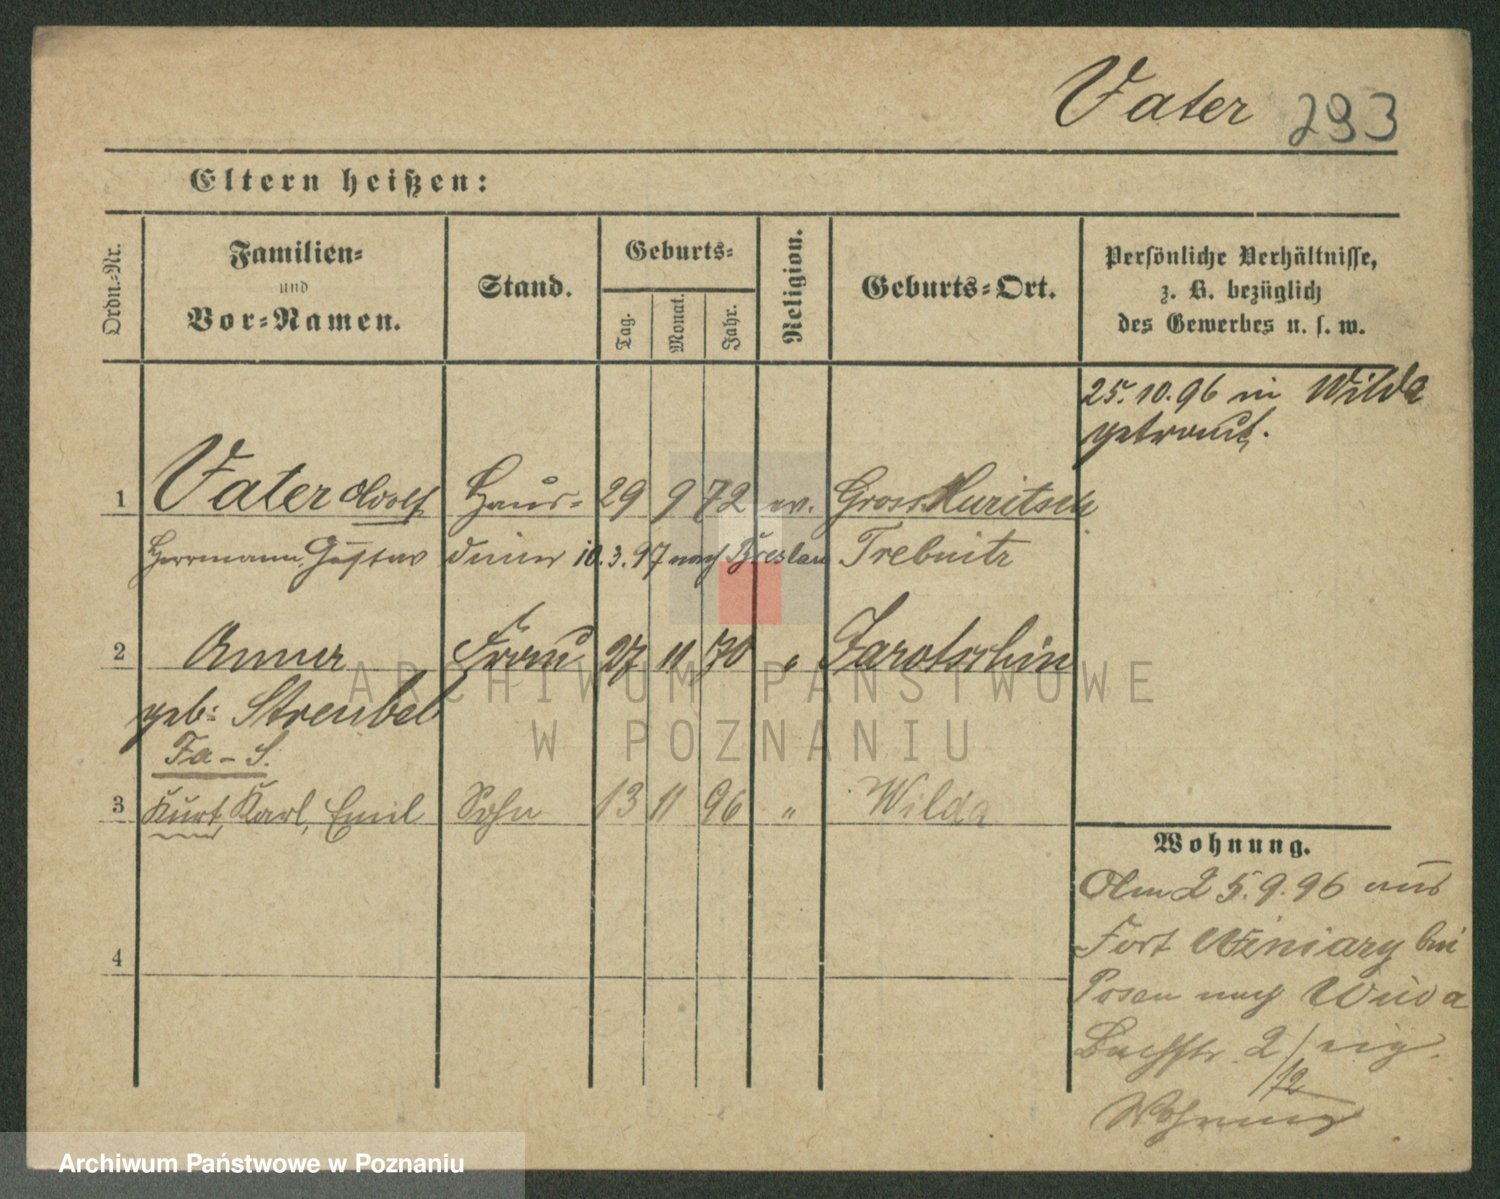 Vater 293
Eltern heißen:
Ordn.-Nr.
Familien-
und
Vor-Namen.
Stand.
Geburts-
Tag.
Monat.
Jahr.
Religion.
Geburts-Ort.
Persönliche Verhältnisse,
z. B. bezüglich
des Gewerbes u. s. w.
25.10.96 in Wilda
getraut.
1 Vater Adolf Haus- 29 9 72 ev. Gross
Herrmann, Gustav diener 10.3.97 nach Breslau Trebnitz
2 Anna Frau 27 11 70 " Jarotschin
geb: Streubel
Fa - S.
3 Kurt, Karl, Emil Sohn 13 11 96 " Wilda
4
Wohnung.
Am 25.9.96 aus
Fort Winiary bei
Posen nach Wilda
2/12 eig.
Wohnung
ARCHIWUM PAŃSTWOWE
W POZNANIU
Archiwum Państwowe w Poznaniu